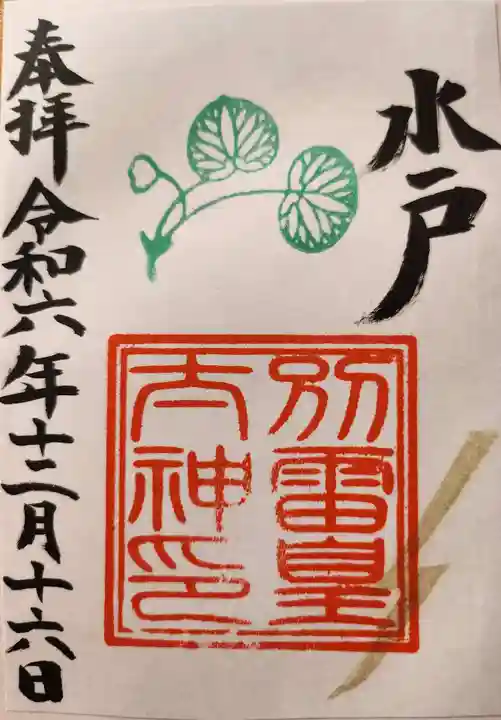 水戸
別雷皇
太神印
奉拝 令和六年十二月十六日